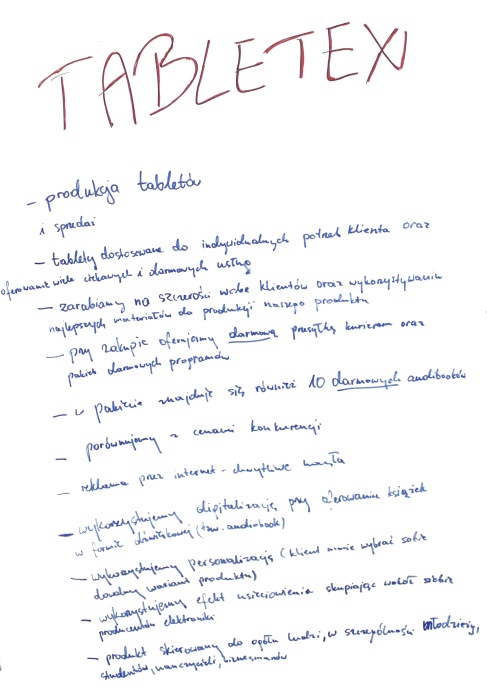 TABLETEX
- produkcja tabletów
i sprzedaż
- tablety dostosowane do indywidualnych potrzeb klienta oraz
oferowanie wiele ciekawych i darmowych usług
- zarabiamy na szczerości wobec klientów oraz wykorzystywaniu
najlepszych materiałów do produkcji naszego produktu
- przy zakupie oferujemy darmową przesyłkę kurierem oraz
pakiet darmowych programów
- w pakiecie znajduje się również 10 darmowych audiobooków
- porównujemy z cenami konkurencji
- reklama przez internet - chwytliwe hasła
- wykorzystujemy digitalizację przy oferowaniu książek
w formie dźwiękowej (tzw. audiobook)
- wykorzystujemy personalizację (klient może wybrać sobie
dowolny wariant produktu)
- wykorzystujemy efekt usieciowienia skupiając wokół siebie
producentów elektroniki
- produkt skierowany do ogółu ludzi, w szczególności młodzieży,
studentów, nauczycieli, biznesmenów